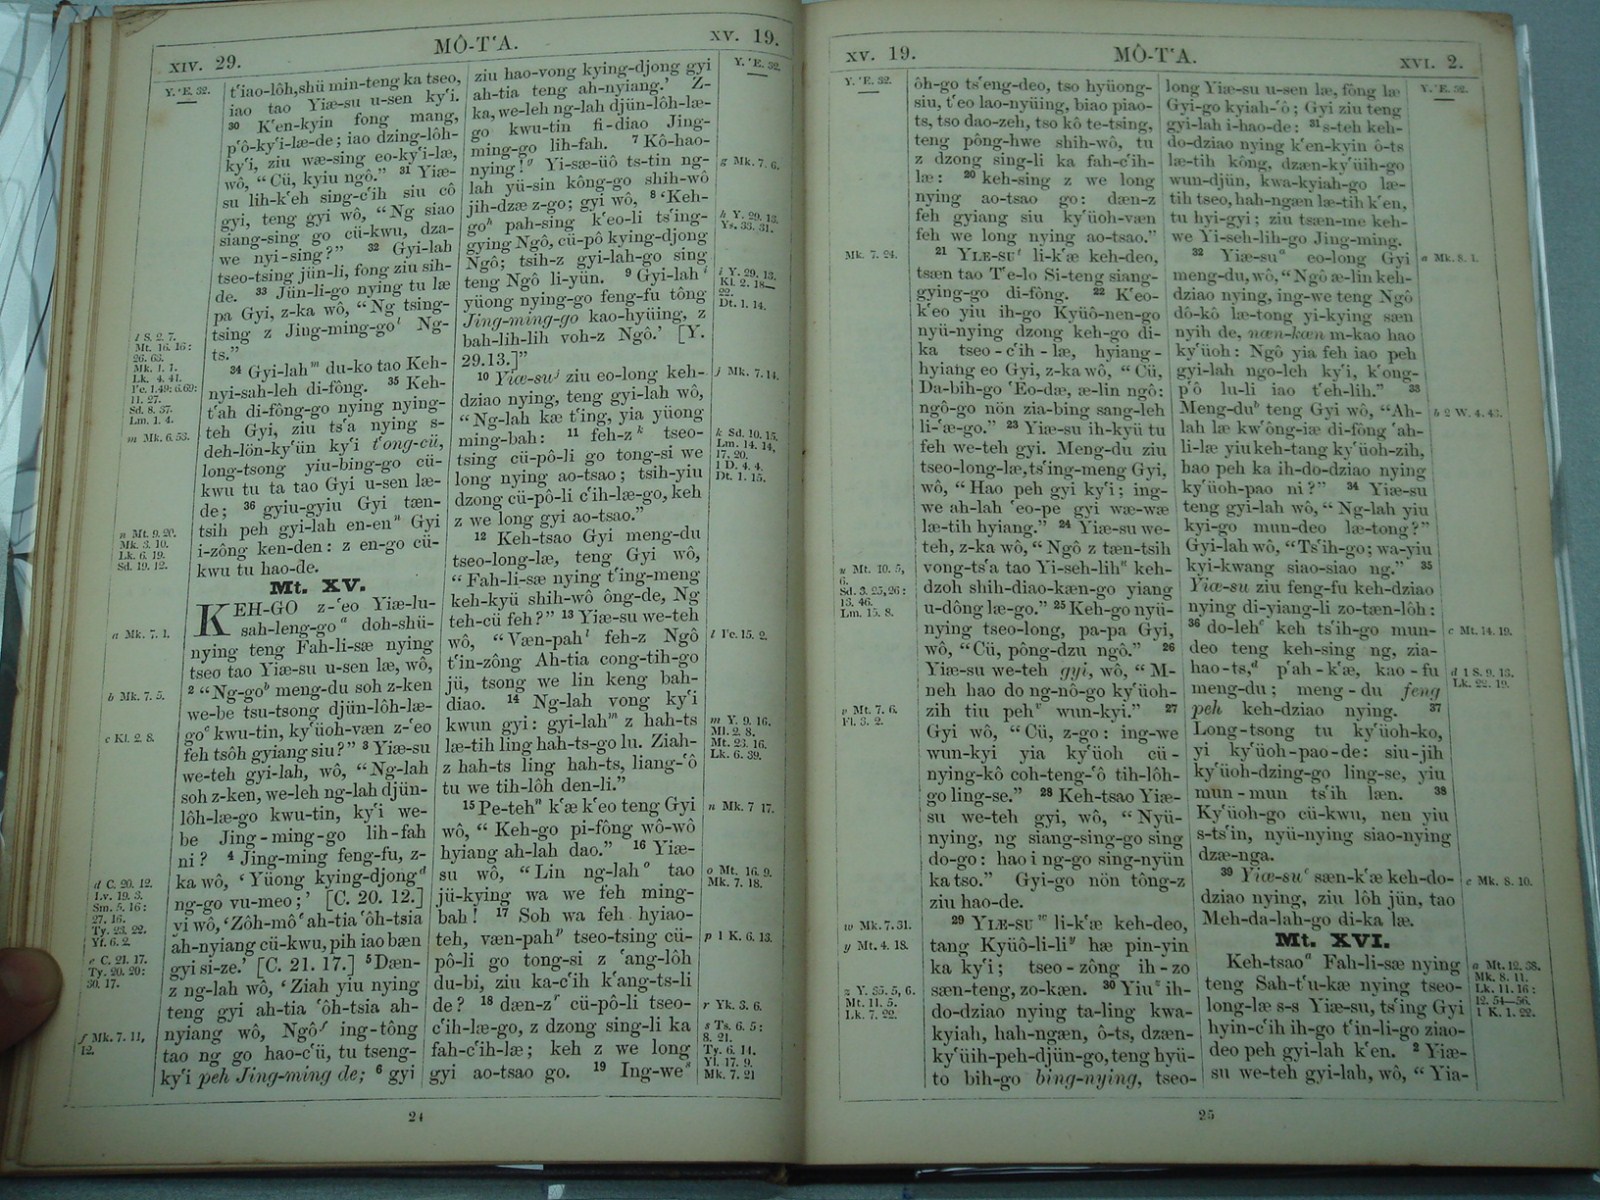 XIV. 29.
MÔ-T‘A.
XV. 19.
Y. ‘E. 32.
t‘iao-lôh, shü min-teng ka tseo,
iao tao Yiæ-su u-sen ky‘i.
30 K‘en-kyin fong mang,
p‘ô-ky‘i-læ-de; iao dzing-lôh-
ky‘i, ziu wæ-sing eo-ky‘i-læ,
wô, “Cü, kyiu ngô.” 31 Yiæ-
su lih-k‘eh sing-c‘ih siu cô
gyi, teng gyi wô, “Ng siao
siang-sing go cü-kwu, dza-
we nyi-sing?” 32 Gyi-lah
tseo-tsing jün-li, fong ziu sih-
de. 33 Jün-li-go nying tu læ
pa Gyi, z-ka wô, “Ng tsing-
tsing z Jing-ming-go l Ng-
ts.”
34 Gyi-lah m du-ko tao Keh-
nyi-sah-leh di-fông. 35 Keh-
t‘ah di-fông-go nying nying-
teh Gyi, ziu ts‘a nying s-
deh-lön-ky‘ün ky‘i t‘ong-cü,
long-tsong yiu-bing-go cü-
kwu tu ta tao Gyi u-sen læ-
de; 36 gyiu-gyiu Gyi tæn-
tsih peh gyi-lah en-en n Gyi
i-zông ken-den: z en-go cü-
kwu tu hao-de.
Mt. XV.
KEH-GO z-‘eo Yiæ-lu-
sah-leng-go a doh-shü-
nying teng Fah-li-sæ nying
tseo tao Yiæ-su u-sen læ, wô,
2 “Ng-go b meng-du soh z-ken
we-be tsu-tsong djün-lôh-læ-
go c kwu-tin, ky‘üoh-væn z-‘eo
feh tsôh gyiang siu?” 3 Yiæ-su
we-teh gyi-lah, wô, “Ng-lah
soh z-ken, we-leh ng-lah djün-
lôh-læ-go kwu-tin, ky‘i we-
be Jing-ming-go lih-fah
ni? 4 Jing-ming feng-fu, z-
ka wô, ‘Yüong kying-djong d
ng-go vu-meo;’ [C. 20. 12.]
yi wô, ‘Zôh-mô e ah-tia ‘ôh-tsia
ah-nyiang cü-kwu, pih iao bæn
gyi si-ze.’ [C. 21. 17.] 5 Dæn-
z ng-lah wô, ‘Ziah yiu nying
teng gyi ah-tia ‘ôh-tsia ah-
nyiang wô, Ngô f ing-tông
tao ng go hao-c‘ü, tu tseng-
ky‘i peh Jing-ming de; 6 gyi
l S. 2. 7.
Mt. 16. 16:
26. 63.
Mk. 1. 1.
Lk. 4. 41.
Ye. 1. 49: 6.69:
11. 27.
Sd. 8. 37.
Lm. 1. 4.
m Mk. 6. 53.
n Mt. 9. 20.
Mk. 3. 10.
Lk. 6. 19.
Sd. 19. 12.
a Mk. 7. 1.
b Mk. 7. 5.
c Kl. 2. 8.
d C. 20. 12.
Lv. 19. 3.
Sm. 5. 16:
27. 16.
Ty. 23. 22.
Yf. 6. 2.
e C. 21. 17.
Ty. 20. 20:
30. 17.
f Mk. 7. 11,
12.
ziu hao-vong kying-djong gyi
ah-tia teng ah-nyiang.’ Z-
ka, we-leh ng-lah djün-lôh-læ-
go kwu-tin fi-diao Jing-
ming-go lih-fah. 7 Kô-hao-
nying! g Yi-sæ-üô ts-tin ng-
lah yü-sin kông-go shih-wô
jih-dzæ z-go; gyi wô, 8 ‘Keh-
go h pah-sing k‘eo-li ts‘ing-
gying Ngô, cü-pô kying-djong
Ngô; tsih-z gyi-lah-go sing
teng Ngô li-yün. 9 Gyi-lah i
yüong nying-go feng-fu tông
Jing-ming-go kao-hyüing, z
bah-lih-lih voh-z Ngô.’ [Y.
29.13.]”
10 Yiæ-su j ziu eo-long keh-
dziao nying, teng gyi-lah wô,
“Ng-lah kæ t‘ing, yia yüong
ming-bah: 11 feh-z k tseo-
tsing cü-pô-li go tong-si we
long nying ao-tsao; tsih-yiu
dzong cü-pô-li c‘ih-læ-go, keh
z we long gyi ao-tsao.”
12 Keh-tsao Gyi meng-du
tseo-long-læ, teng Gyi wô,
“Fah-li-sæ nying t‘ing-meng
keh-kyü shih-wô ông-de, Ng
teh-cü feh?” 13 Yiæ-su we-teh
wô, “Væn-pah l feh-z Ngô
t‘in-zông Ah-tia cong-tih-go
jü, tsong we lin keng bah-
diao. 14 Ng-lah vong ky‘i
kwun gyi: gyi-lah m z hah-ts
læ-tih ling hah-ts-go lu. Ziah-
z hah-ts ling hah-ts, liang-‘ô
tu we tih-lôh den-li.”
15 Pe-teh n k‘æ k‘eo teng Gyi
wô, “Keh-go pi-fông wô-wô
hyiang ah-lah dao.” 16 Yiæ-
su wô, “Lin ng-lah o tao
jü-kying wa we feh ming-
bah! 17 Soh wa feh hyiao-
teh, væn-pah p tseo-tsing cü-
pô-li go tong-si z ‘ang-lôh
du-bi, ziu ka-c‘ih k‘ang-ts-li
de? 18 dæn-z r cü-pô-li tseo-
c‘ih-læ-go, z dzong sing-li ka
fah-c‘ih-læ; keh z we long
gyi ao-tsao go. 19 Ing-we s
Y. ‘E. 32.
g Mk. 7. 6.
h Y. 29. 13.
Ys. 33. 31.
i Y. 29. 13.
Kl. 2. 18—
22.
Dt. 1. 14.
j Mk. 7. 14.
k Sd. 10. 15.
Lm. 14. 14,
17. 20.
1 D. 4. 4.
Dt. 1. 15.
l Ye. 15. 2.
m Y. 9. 16.
Ml. 2. 8.
Mt. 23. 16.
Lk. 6. 39.
n Mk. 7 17.
o Mt. 16. 9.
Mk. 7. 18.
p 1 K. 6. 13.
r Yk. 3. 6.
s Ts. 6. 5:
8. 21.
Ty. 6. 14.
Yl. 17. 9.
Mk. 7. 21
24
XV. 19.
MÔ-T‘A.
XVI. 2.
Y. ‘E. 32.
ôh-go ts‘eng-deo, tso hyüong-
siu, t‘eo lao-nyüing, biao piao-
ts, tso dao-zeh, tso kô te-tsing,
teng pông-hwe shih-wô, tu
z dzong sing-li ka fah-c‘ih-
læ: 20 keh-sing z we long
nying ao-tsao go: dæn-z
feh gyiang siu ky‘üoh-væn
feh we long nying ao-tsao.”
21 YIÆ-SU t li-k‘æ keh-deo,
tsæn tao T‘e-lo Si-teng siang-
gying-go di-fông. 22 K‘eo-
k‘eo yiu ih-go Kyüô-nen-go
nyü-nying dzong keh-go di-
ka tseo-c‘ih-læ, hyiang-
hyiang eo Gyi, z-ka wô, “Cü,
Da-bih-go ‘Eo-dæ, æ-lin ngô:
ngô-go nön zia-bing sang-leh
li-‘æ-go.” 23 Yiæ-su ih-kyü tu
feh we-teh gyi. Meng-du ziu
tseo-long-læ, ts‘ing-meng Gyi,
wô, “Hao peh gyi ky‘i; ing-
we ah-lah ‘eo-pe gyi wæ-wæ
læ-tih hyiang.” 24 Yiæ-su we-
teh, z-ka wô, “Ngô z tæn-tsih
vong-ts‘a tao Yi-seh-lih u keh-
dzoh shih-diao-kæn-go yiang
u-dông læ-go.” 25 Keh-go nyü-
nying tseo-long, pa-pa Gyi,
wô, “Cü, pông-dzu ngô.” 26
Yiæ-su we-teh gyi, wô, “M-
neh hao do ng-nô-go ky‘üoh-
zih tiu peh v wun-kyi.” 27
Gyi wô, “Cü, z-go: ing-we
wun-kyi yia ky‘üoh cü-
nying-kô coh-teng-‘ô tih-lôh-
go ling-se.” 28 Keh-tsao Yiæ-
su we-teh gyi, wô, “Nyü-
nying, ng siang-sing-go sing
do-go: hao i ng-go sing-nyün
ka tso.” Gyi-go nön tông-z
ziu hao-de.
29 YIÆ-SU w li-k‘æ keh-deo,
tang Kyüô-li-li y hæ pin-yin
ka ky‘i; tseo-zông ih-zo
sæn-teng, zo-kæn. 30 Yiu z ih-
do-dziao nying ta-ling kwa-
kyiah, hah-ngæn, ô-ts, dzæn-
ky‘üih-peh-djün-go, teng hyü-
to bih-go bing-nying, tseo-
Y. ‘E. 32.
Mk. 7. 24.
u Mt. 10. 5,
6.
Sd. 3. 25,26:
13. 46.
Lm. 15. 8.
v Mt. 7. 6.
Fl. 3. 2.
w Mk. 7. 31.
y Mt. 4. 18.
z Y. 35. 5, 6.
Mt. 11. 5.
Lk. 7. 22.
long Yiæ-su u-sen læ, fông læ
Gyi-go kyiah-‘ô; Gyi ziu teng
gyi-lah i-hao-de: 31 s-teh keh-
do-dziao nying k‘en-kyin ô-ts
læ-tih kông, dzæn-ky‘üih-go
wun-djün, kwa-kyiah-go læ-
tih tseo, hah-ngæn læ-tih k‘en,
tu hyi-gyi; ziu tsæn-me keh-
we Yi-seh-lih-go Jing-ming.
32 Yiæ-su a eo-long Gyi
meng-du, wô, “Ngô æ-lin keh-
dziao nying, ing-we teng Ngô
dô-kô læ-tong yi-kying sæn
nyih de, næn-kæn m-kao hao
ky‘üoh: Ngô yia feh iao peh
gyi-lah ngo-leh ky‘i, k‘ong-
p‘ô lu-li iao t‘eh-lih.” 33
Meng-du b teng Gyi wô, “Ah-
lah læ kw‘ông-iæ di-fông ‘ah-
li-læ yiu keh-tang ky‘üoh-zih,
hao peh ka ih-do-dziao nying
ky‘üoh-pao ni?” 34 Yiæ-su
teng gyi-lah wô, “Ng-lah yiu
kyi-go mun-deo læ-tong?”
Gyi-lah wô, “Ts‘ih-go; wa-yiu
kyi-kwang siao-siao ng.” 35
Yiæ-su ziu feng-fu keh-dziao
nying di-yiang-li zo-tæn-lôh:
36 do-leh c keh ts‘ih-go mun-
deo teng keh-sing ng, zia-
hao-ts, d p‘ah-k‘æ, kao-fu
meng-du; meng-du feng
peh keh-dziao nying. 37
Long-tsong tu ky‘üoh-ko,
yi ky‘üoh-pao-de: siu-jih
ky‘üoh-dzing-go ling-se, yiu
mun-mun ts‘ih læn. 38
Ky‘üoh-go cü-kwu, nen yiu
s-ts‘in, nyü-nying siao-nying
dzæ-nga.
39 Yiæ-su e sæn-k‘æ keh-do-
dziao nying, ziu lôh jün, tao
Meh-da-lah-go di-ka læ.
Mt. XVI.
Keh-tsao a Fah-li-sæ nying
teng Sah-t‘u-kæ nying tseo-
long-læ s-s Yiæ-su, ts‘ing Gyi
hyin-c‘ih ih-go t‘in-li-go ziao-
deo peh gyi-lah k‘en. 2 Yiæ-
su we-teh gyi-lah, wô, “Yia-
Y. ‘E. 32.
a Mk. 8. 1.
b 2 W. 4. 43.
c Mt. 14. 19.
d 1 S. 9. 13.
Lk. 22. 19.
e Mk. 8. 10.
a Mt. 12. 38.
Mk. 8. 11.
Lk. 11. 16:
12. 54—56.
1 K. 1. 22.
25